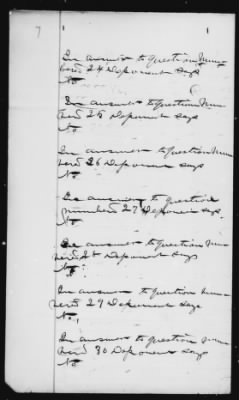 7
In answer to question Num-
berd 24 Deponent says
No
In answer to question Num
berd 25 Deponent says
No
In answer to question Num
berd 26 Deponent says
No
In answer to question
numberd 27 Deponent says
No
In answer to question Num
berd 28 Deponent says
No.
In answer to question num-
berd 29 Deponent says
No,
In answer to question num
berd 30 Deponent says
No